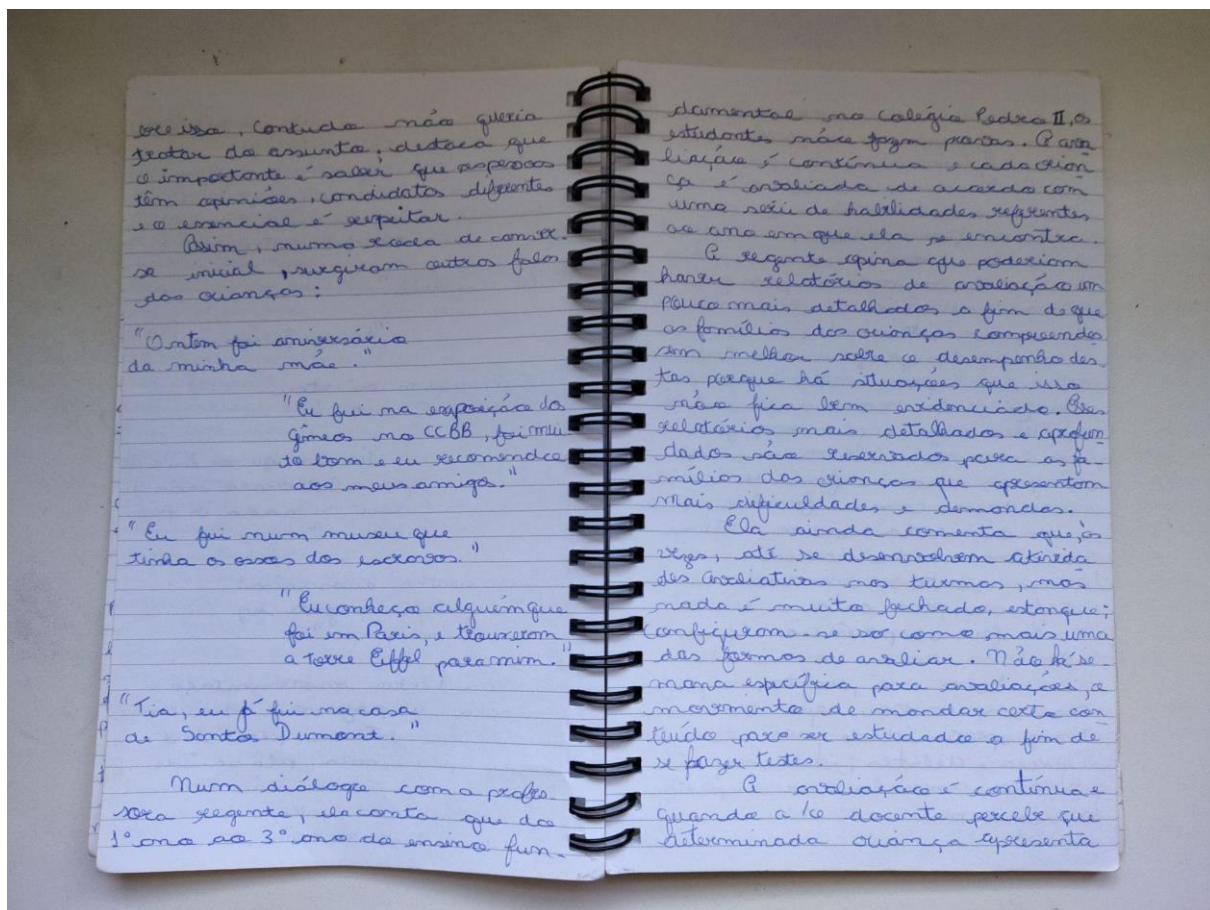 isso, contudo não queria
tratar do assunto, destaca que
o importante é saber que as pessoas
têm opiniões, candidatos diferentes
e o essencial é respeitar.
Assim, numa roda de conver-
sa inicial, surgiram outras falas
das crianças:
"Ontem foi aniversário
da minha mãe."
"Eu fui na exposição dos
gêmeos no CCBB, foi mui
to bom e eu recomendo
aos meus amigos."
"Eu fui num museu que
tinha os ossos dos escravos."
"Eu conheço alguém que
foi em Paris, e trouxeram
a torre Eiffel para mim."
"Tia, eu já fui na casa
de Santos Dumont."
Num diálogo com a profes
sora regente, ela conta que do
1º ano ao 3º ano do ensino fun-
damental no Colégio Pedro II, os
estudantes não fazem provas. A ava
liação é contínua e cada crian
ça é avaliada de acordo com
uma série de habilidades referentes
ao ano em que ela se encontra.
A regente opina que poderiam
haver relatórios de avaliação um
pouco mais detalhados a fim de que
as famílias das crianças compreendes
sem melhor sobre o desempenho des
tas porque há situações que isso
não fica bem evidenciado. Esses
relatórios mais detalhados e aprofun
dados são reservados para as fa-
mílias das crianças que apresentam
mais dificuldades e demandas.
Ela ainda comenta que, às
vezes, até se desenvolvem ativida
des avaliativas nas turmas, mas
nada é muito fechado, estanque;
configuram-se só como mais uma
das formas de avaliar. Não há se-
mana específica para avaliações, o
movimento de mandar certo con
teúdo para ser estudado a fim de
se fazer testes.
A avaliação é contínua e
quando a/o docente percebe que
determinada criança apresenta